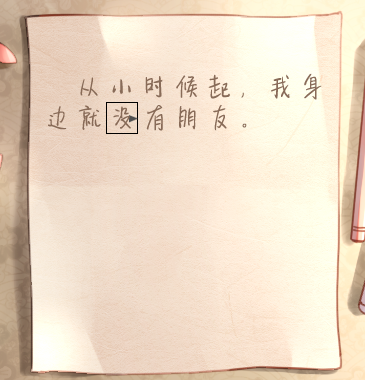 从小时候起，我身
边就没有朋友。